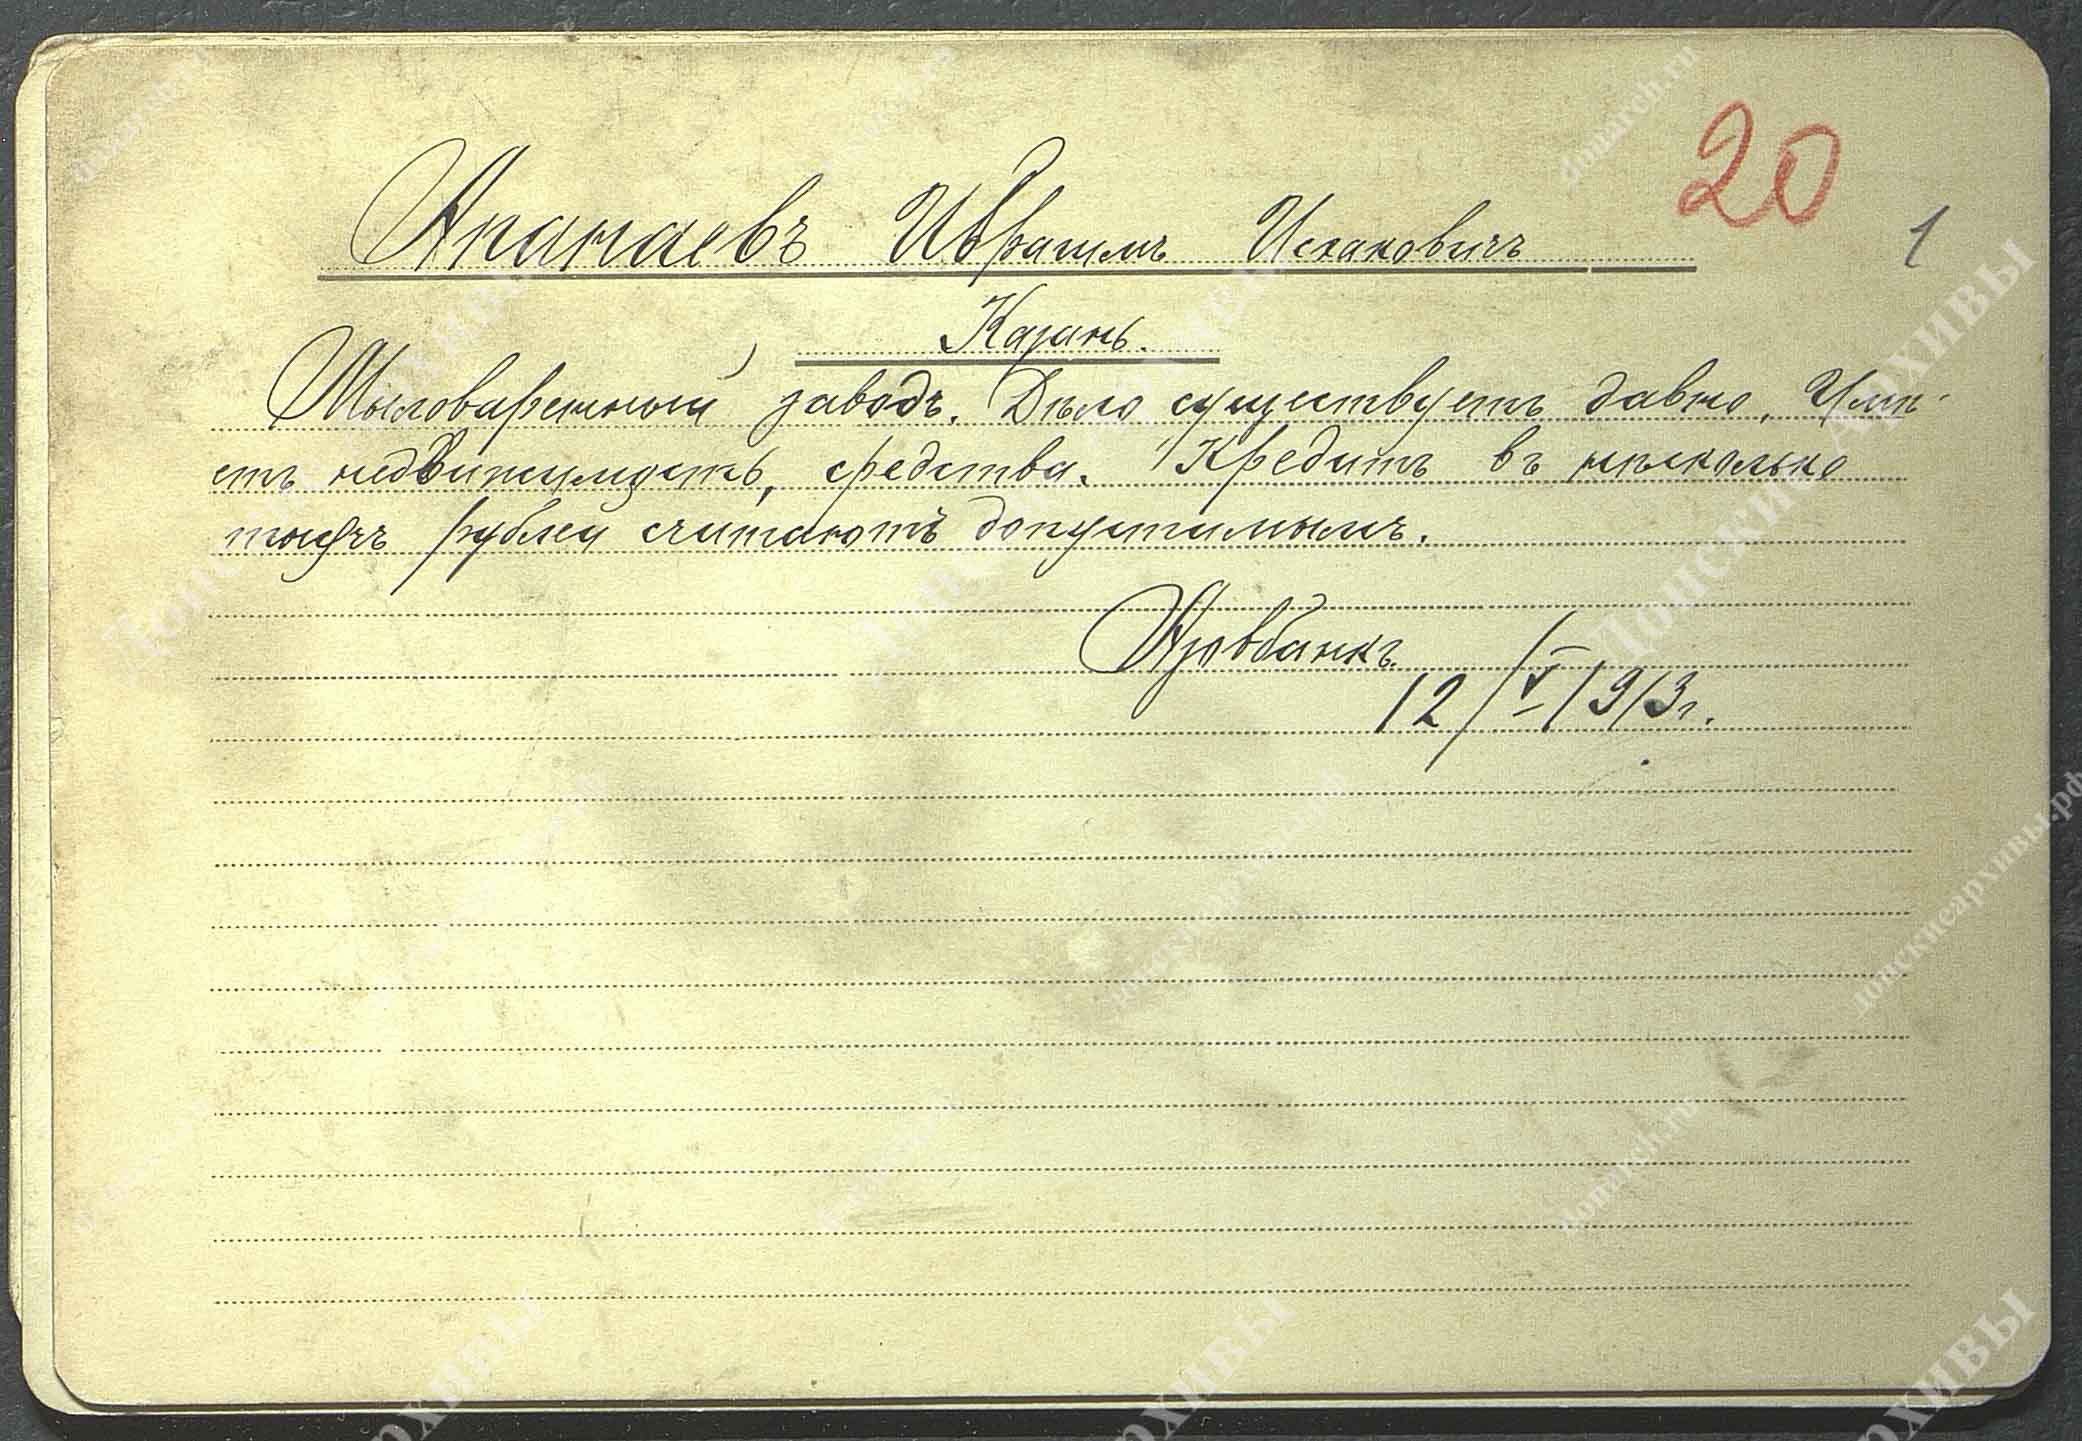 20
1
Апанаевъ Ибрагимъ Исхаковичъ
Казань.
Мыловаренный заводъ. Дѣло существуетъ давно. Имѣ-
етъ недвижимость, средства. Кредитъ въ нѣсколько
тысячъ рублей считаютъ допустимымъ.
Азовбанкъ.
12/V 1913 г.
donarch.ru
Донские Архивы
донскиеархивы.рф
donarch.ru
Архивы